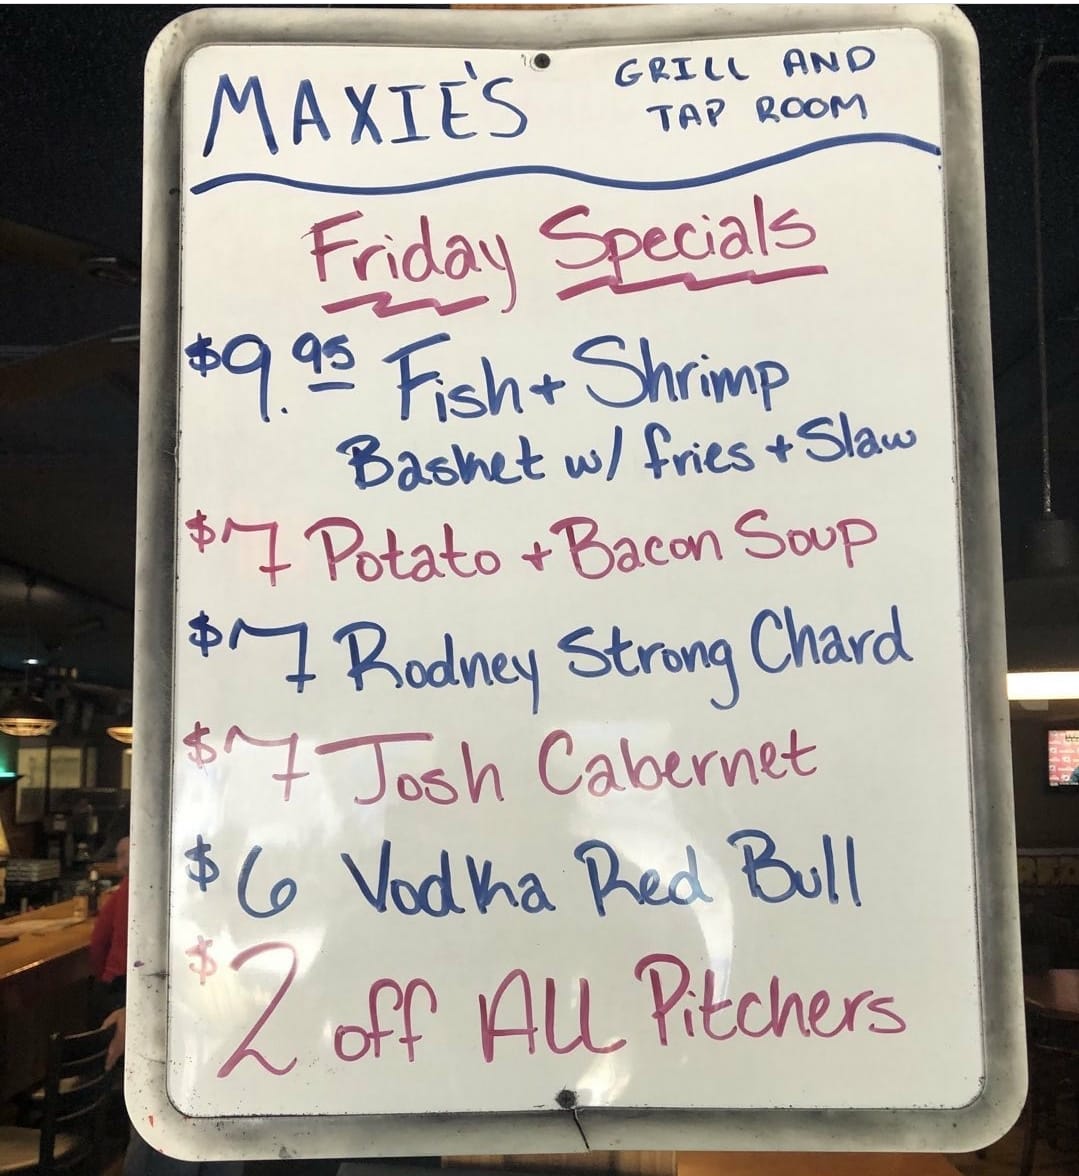 MAXIE'S GRILL AND
TAP ROOM
Friday Specials
$9.95 Fish + Shrimp
Basket w/ fries + Slaw
$7 Potato + Bacon Soup
$7 Rodney Strong Chard
$7 Josh Cabernet
$6 Vodka Red Bull
$2 off ALL Pitchers